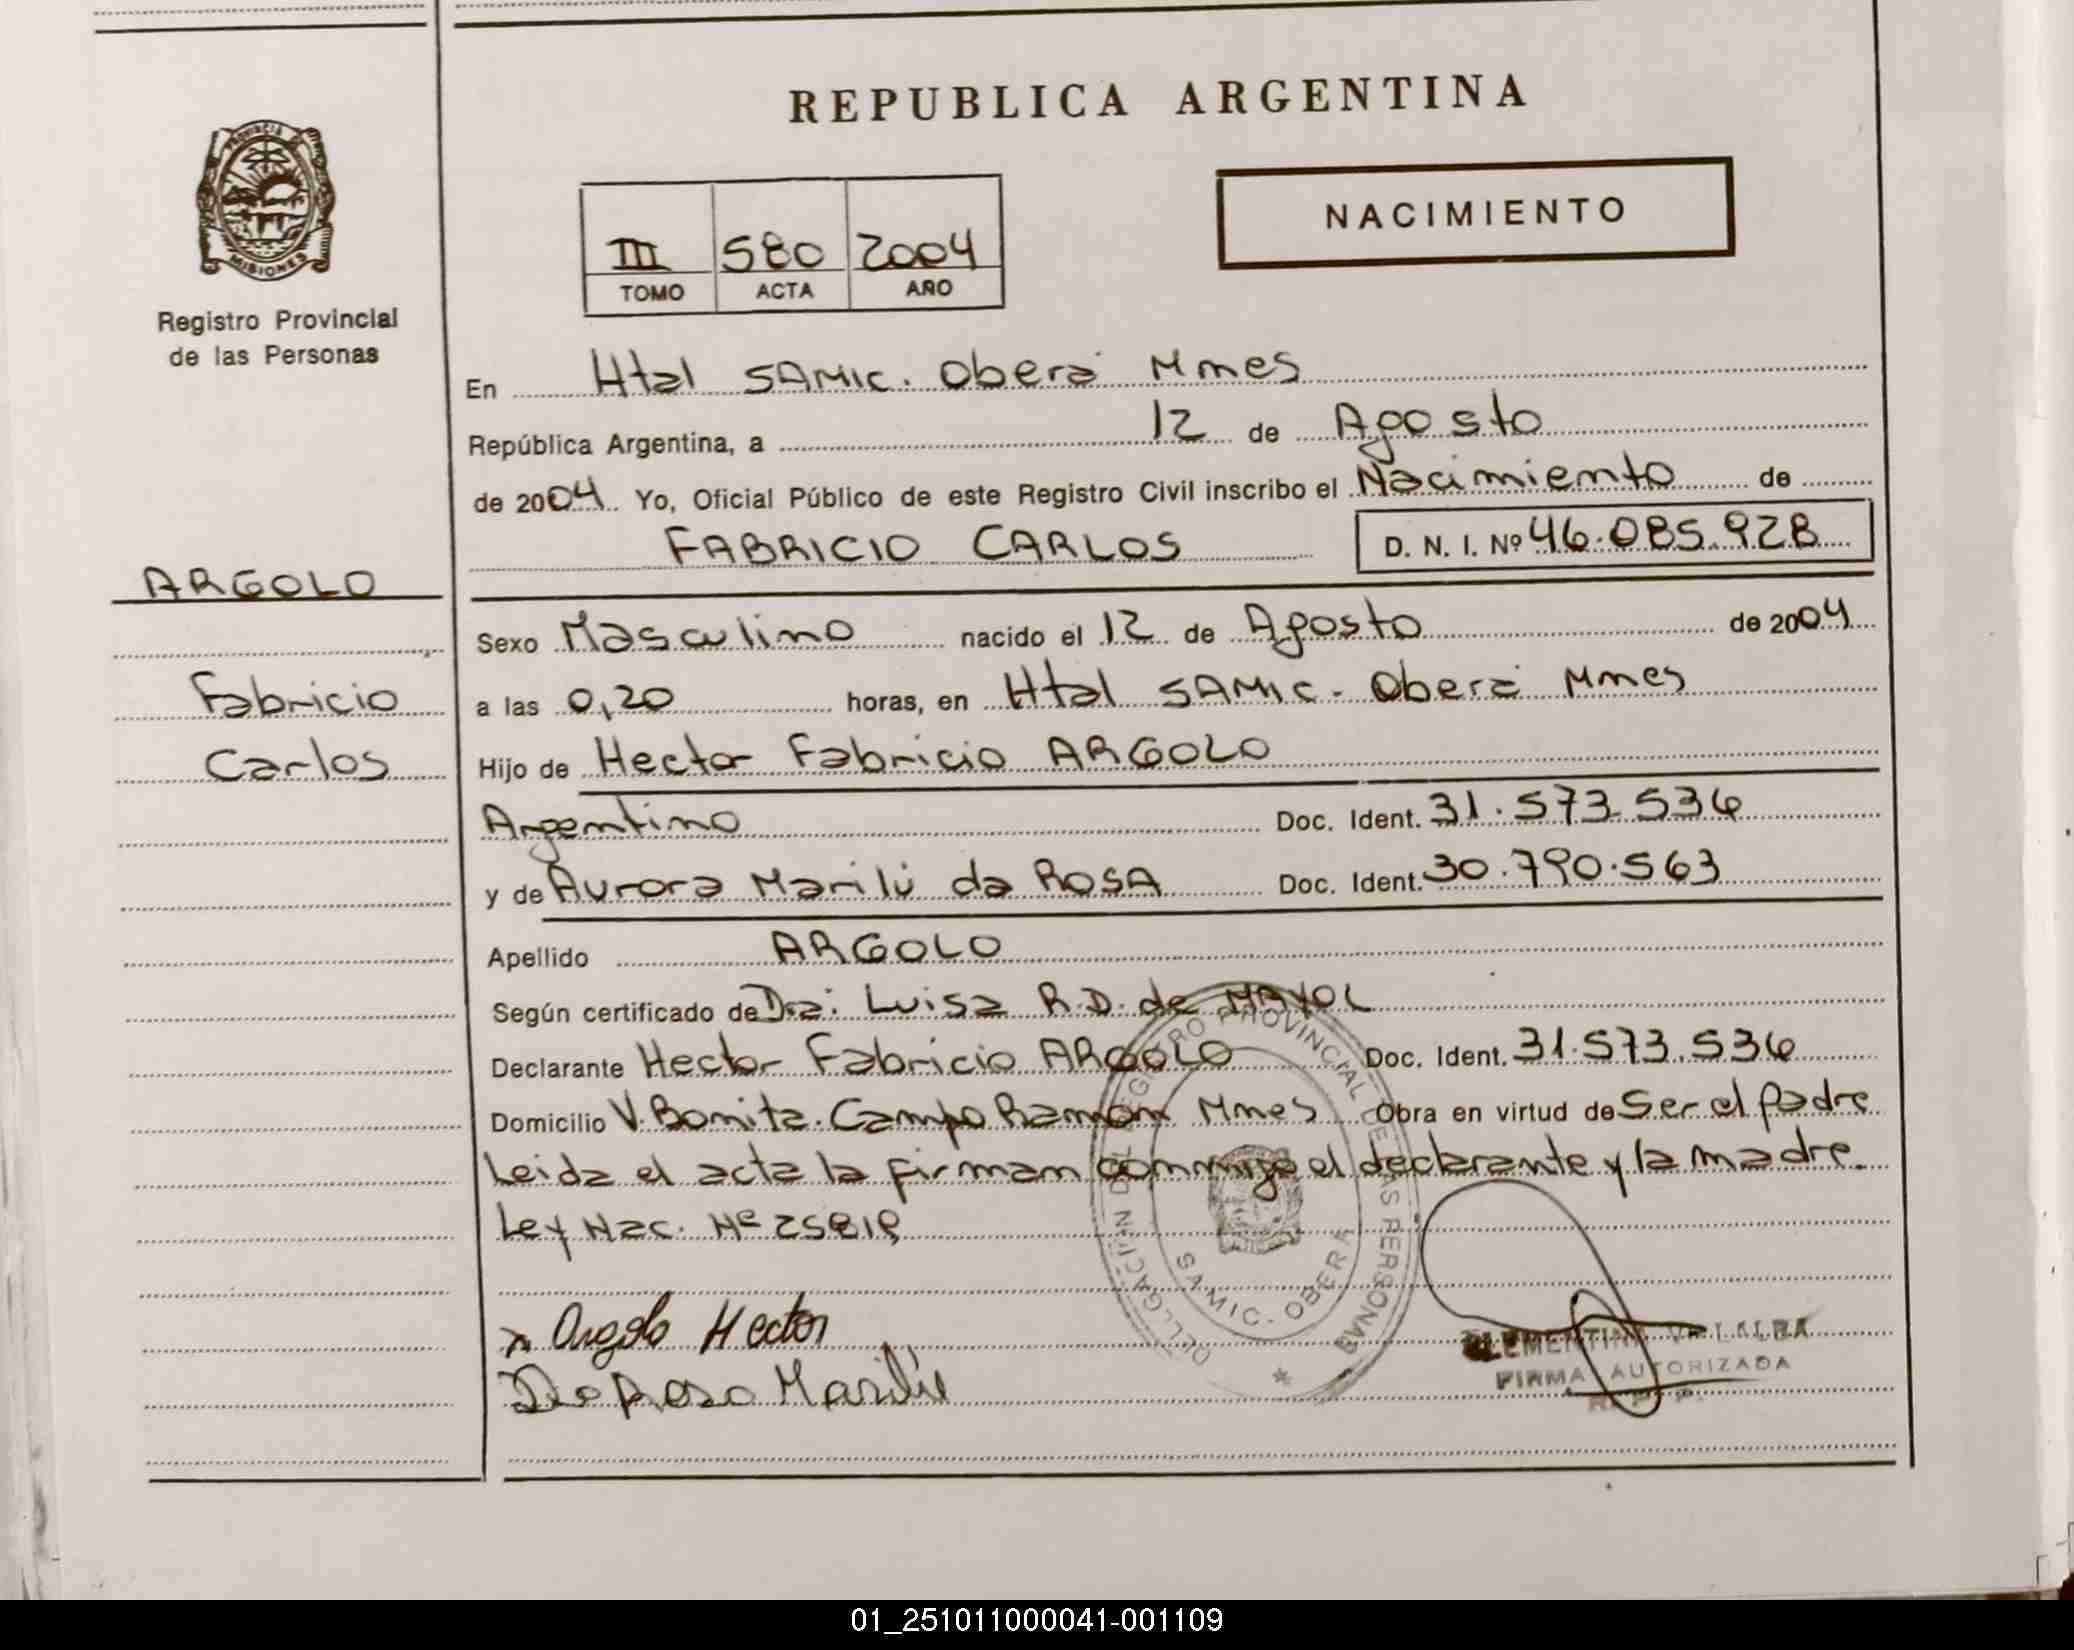 REPUBLICA ARGENTINA
PROVINCIA DE
MISIONES
Registro Provincial
de las Personas
III 580 2004
TOMO ACTA AÑO
NACIMIENTO
En Htal SAMIC. Oberá Mnes
República Argentina, a 12 de Agosto
de 2004. Yo, Oficial Público de este Registro Civil inscribo el Nacimiento de
FABRICIO CARLOS D. N. I. Nº 46.085.928
ARGOLO
Fabricio
Carlos
Sexo Masculino nacido el 12 de Agosto de 2004
a las 0,20 horas, en Htal SAMIC. Oberá Mnes
Hijo de Hector Fabricio ARGOLO
Argentino Doc. Ident. 31.573.536
y de Aurora Marilú da ROSA Doc. Ident. 30.790.563
Apellido ARGOLO
Según certificado de Dra: Luisa R.D. de MAYOL
Declarante Hector Fabricio ARGOLO Doc. Ident. 31.573.536
Domicilio V. Bonita. Campo Ramon Mnes Obra en virtud de Ser el padre
Leida el acta la firman conmigo el declarante y la madre.
Ley Nac. Nº 25819
REGISTRO PROVINCIAL DE LAS PERSONAS
SAMIC. OBERA
x Argolo Hector
Da Rosa Marilú
CLEMENTINA
FIRMA AUTORIZADA
01_251011000041-001109